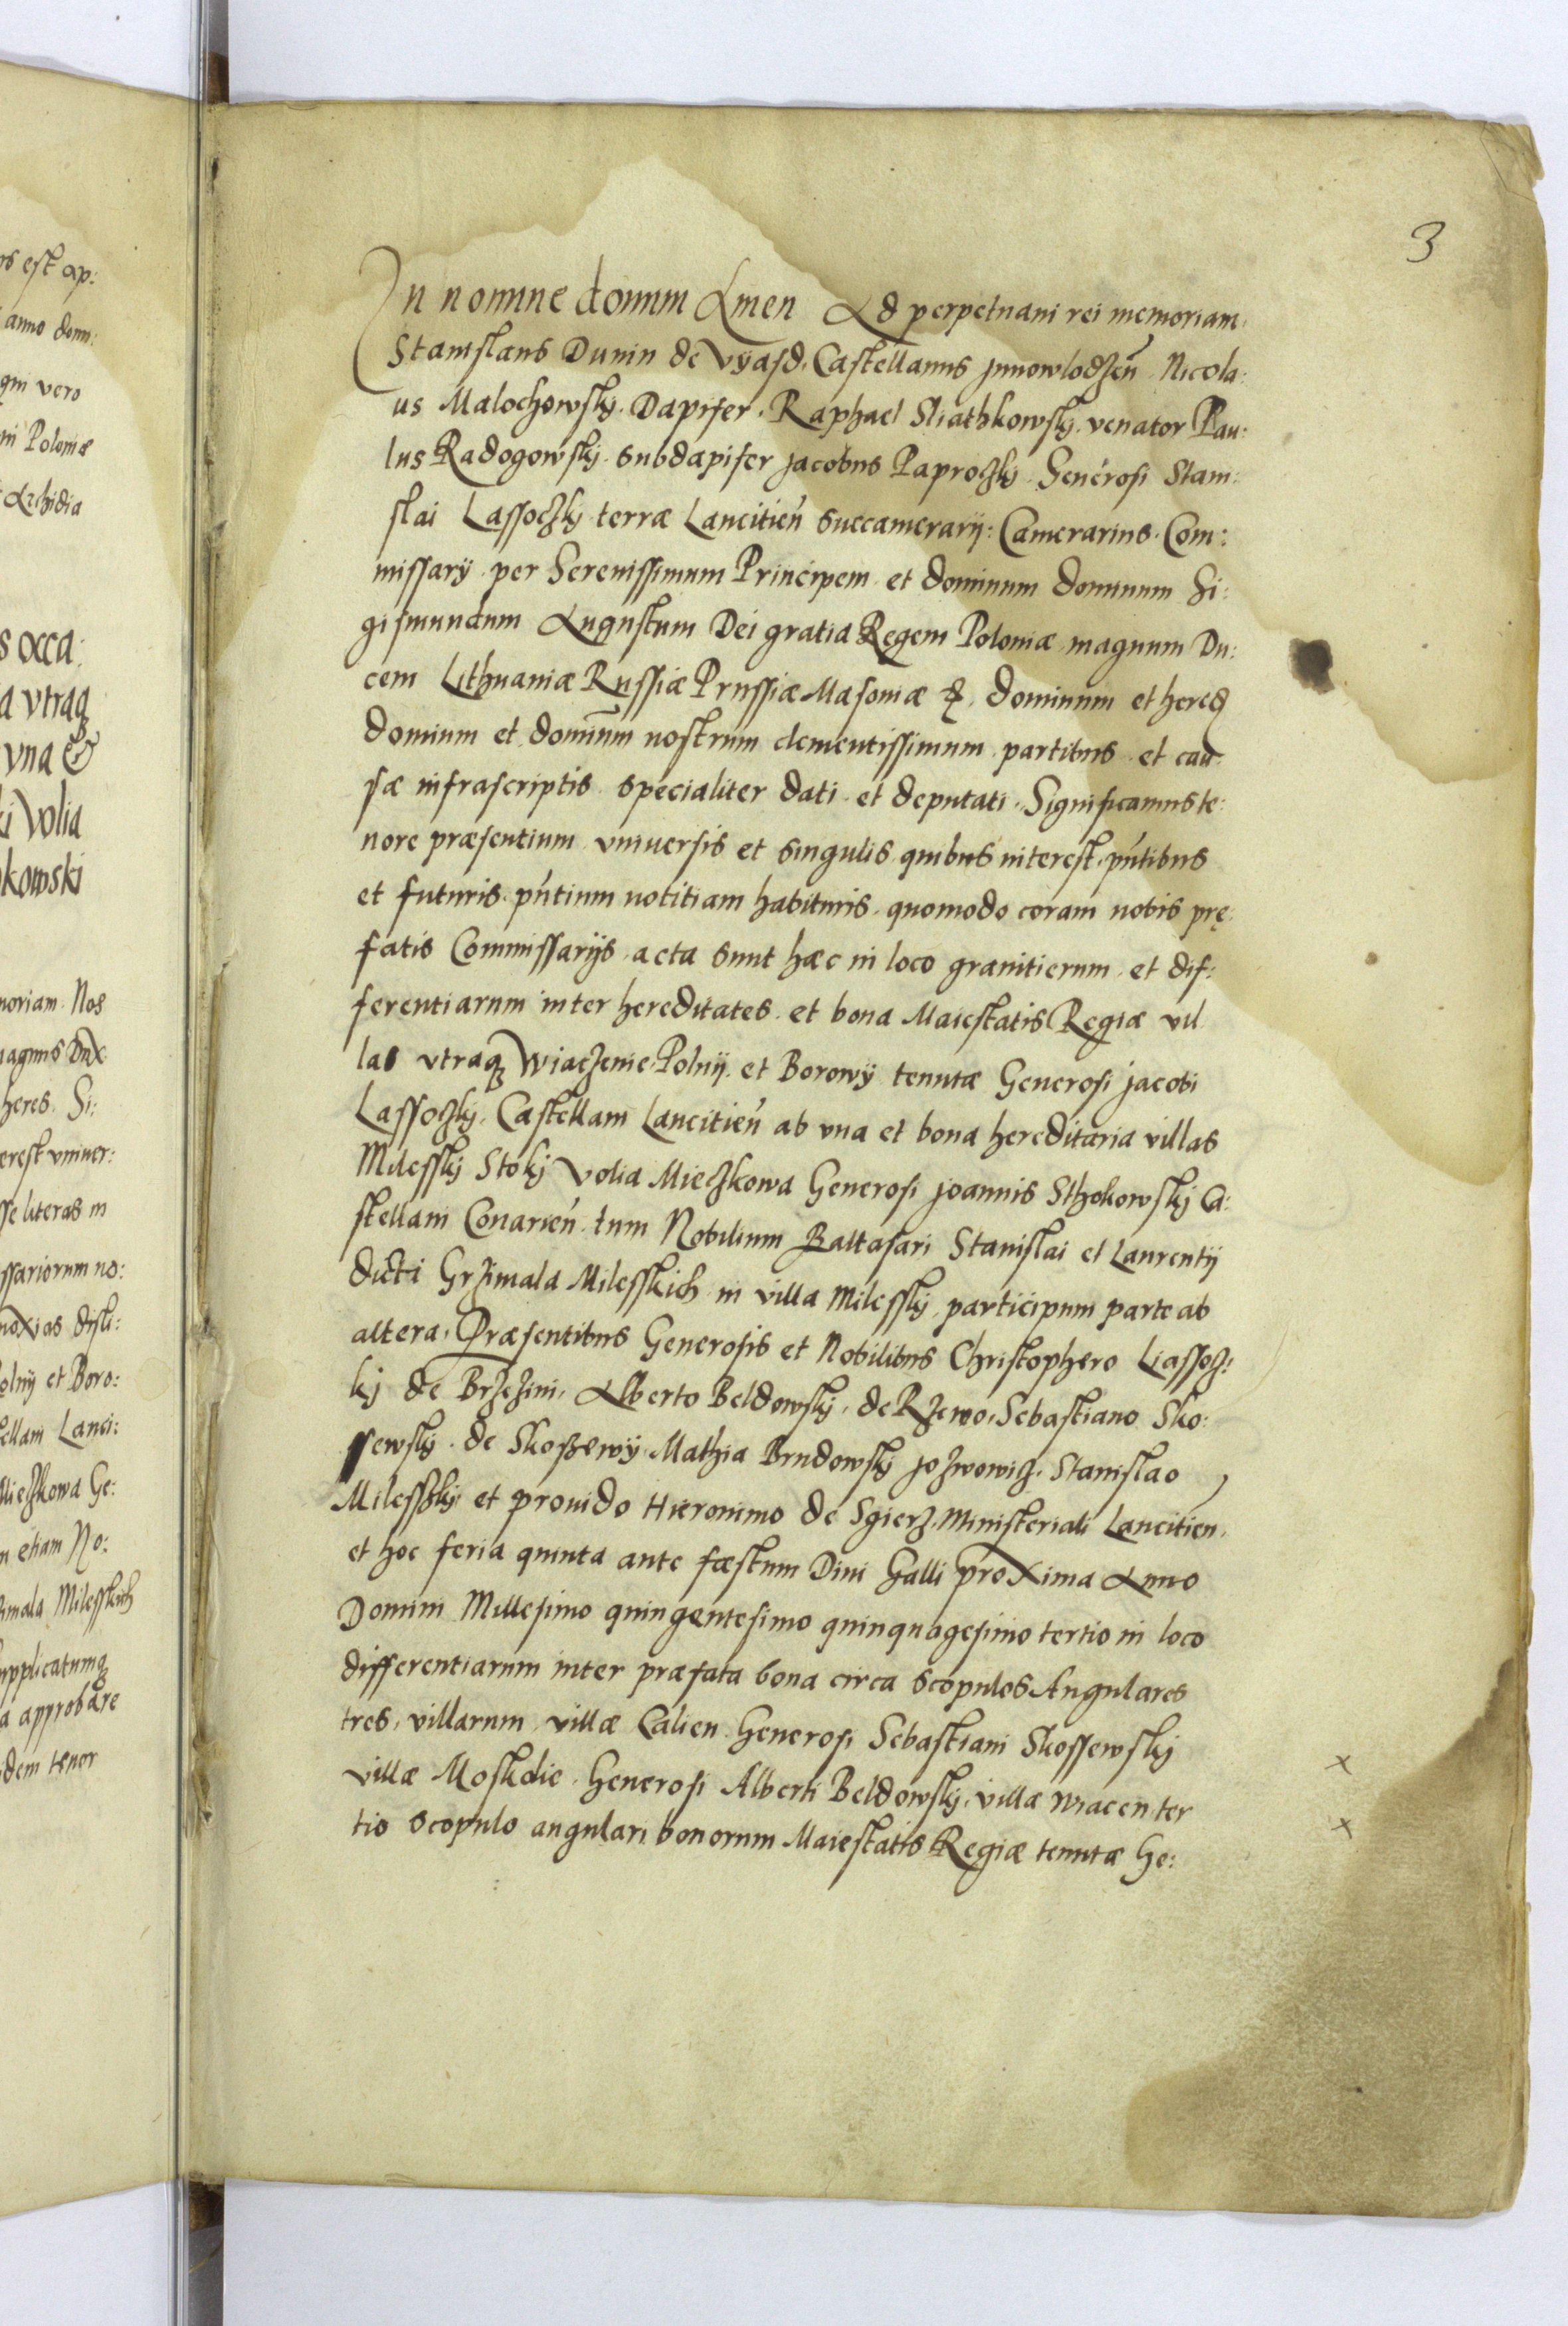 rs est ap:
anno domi:
qui vero
ni Poloniæ
Archidia
s occa:
a vtraq₃
vna &
ki Volia
kowski
moriam. Nos
magnus Dux
heres. Si:
erest vniuer:
se literas in
ssariorum no:
noxias disti:
olny et Boro:
ellani Lanci:
Mieczkowa Ge:
m etiam No:
zimala Milesskich
supplicatumq₃
a approbare
dem tenor
3
In nomine domini Amen Ad perpetuam rei memoriam.
Stanislaus Dunin de Vyasd. Castellanus jnnowlodzen̄ Nicola:
us Malochowskj. Dapifer. Raphael Sliathkowskj. venator Pau:
lus Radogowskj. subdapifer jacobus Paproczkj Generosi Stani:
slai Lassoczkj terræ Lancitien̄ succamerarij: Camerarius. Com:
missarij per Serenissimum Principem et dominum dominum Si:
gismundum Augustum Dei gratia Regem Poloniæ magnum Du:
cem Lithuaniæ Russiæ Prussiæ Masoniæ &. dominum et hered
domium et dominūm nostrum clementissimum partibus et cau
sæ infrascriptis specialiter dati et deputati. Significamus te:
nore præsentium vniuersis et singulis quibus interest. pn̄tibus
et futuris. pn̄tium notitiam habituris. quomodo coram nobis prę:
fatis Commissarijs acta sunt hæc in loco granitierum et dif:
ferentiarum inter hereditates et bona Maiestatis Regiæ vil
las vtraq₃ Wiaczenie Polnij et Borowy tenutæ Generosi jacobi
Lassoczkj. Castellani Lancitien̄ ab vna et bona hereditaria villas
Milesskj Stokj Volia Mieczkowa Generosi joannis Sthokowskj Ca:
stellani Conarien̄ tum Nobilium Baltasari Stanislai et Laurentij
dicti Grzimala Milesskich in villa Milesskj participum parte ab
altera. Præsentibus Generosis et Nobilibus Christophero Liassocz:
kj de Brzezini. Alberto Beldowskj. de Rzewo. Sebastiano Sko:
sewskj de Skoszewy Mathia Brudowskj jozwowicz. Stanislao
Milesszkj et prouido Hieronimo de Sgierz. Ministeriali Lancitien.
et hoc feria quinta ante fæstum Diui Galli proxima Anno
Domini Millesimo quingentesimo quinquagesimo tertio in loco
differentiarum inter præfata bona circa scopulos Angulares
tres. villarum villæ Calien Generosi Sebastiani Skossewskj
villæ Moskolie Generosi Alberti Beldowskj. villæ wiacen ter x
tio scopulo angulari bonorum Maiestatis Regiæ tenutæ Ge: x